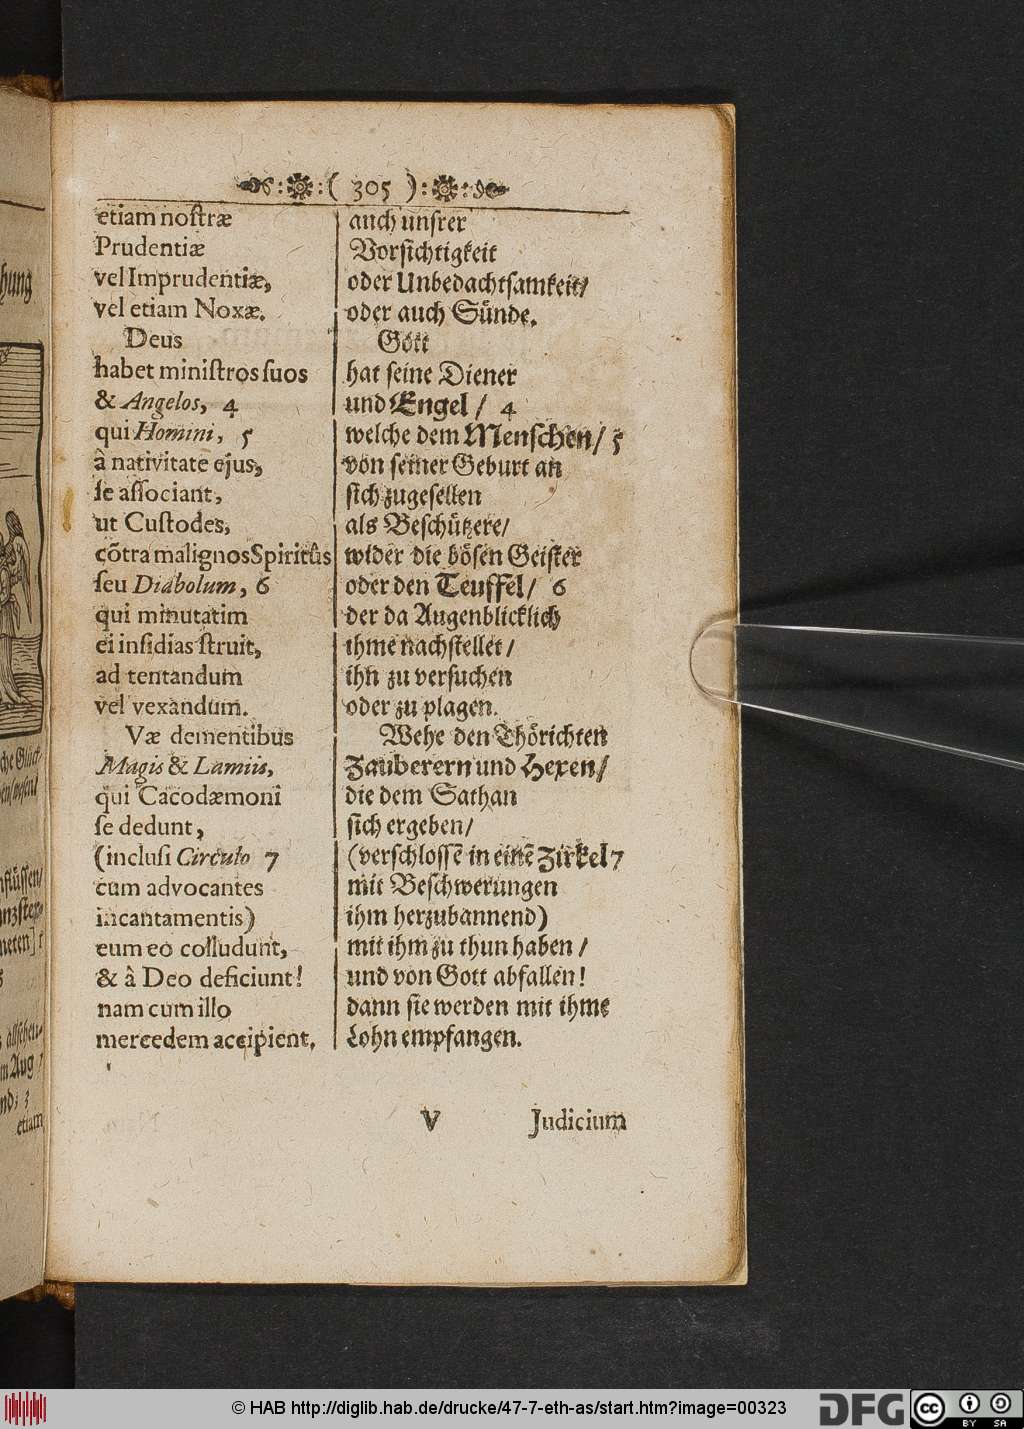 ( 305 )
etiam noſtræ
Prudentiæ
vel Imprudentiæ,
vel etiam Noxæ.
Deus
habet miniſtros ſuos
& Angelos, 4
qui Homini, 5
â nativitate ejus,
ſe aſſociant,
ut Cuſtodes,
cõtra malignos Spiritûs
ſeu Diabolum, 6
qui minutatim
ei inſidias ſtruit,
ad tentandum
vel vexandum.
Væ dementibus
Magis & Lamiis,
qui Cacodæmoni
ſe dedunt,
(incluſi Circulo 7
eum advocantes
incantamentis)
eum eo colludunt,
& â Deo deficiunt!
nam cum illo
mercedem accipient.
auch unſrer
Vorſichtigkeit
oder Unbedachtſamkeit/
oder auch Sünde.
Gott
hat ſeine Diener
und Engel / 4
welche dem Menſchen/ 5
von ſeiner Geburt an
ſich zugeſellen
als Beſchützere/
wider die böſen Geiſter
oder den Teuffel/ 6
der da Augenblicklich
ihme nachſtellet/
ihn zu verſuchen
oder zu plagen.
Wehe den Thörichten
Zauberern und Hexen/
die dem Sathan
ſich ergeben/
(verſchloſſē in einē Zirkel 7
mit Beſchwerungen
ihm herzubannend)
mit ihm zu thun haben /
und von Gott abfallen!
dann ſie werden mit ihme
Lohn empfangen.
V Judicium
etiam
© HAB http://diglib.hab.de/drucke/47-7-eth-as/start.htm?image=00323
DFG
cc BY SA